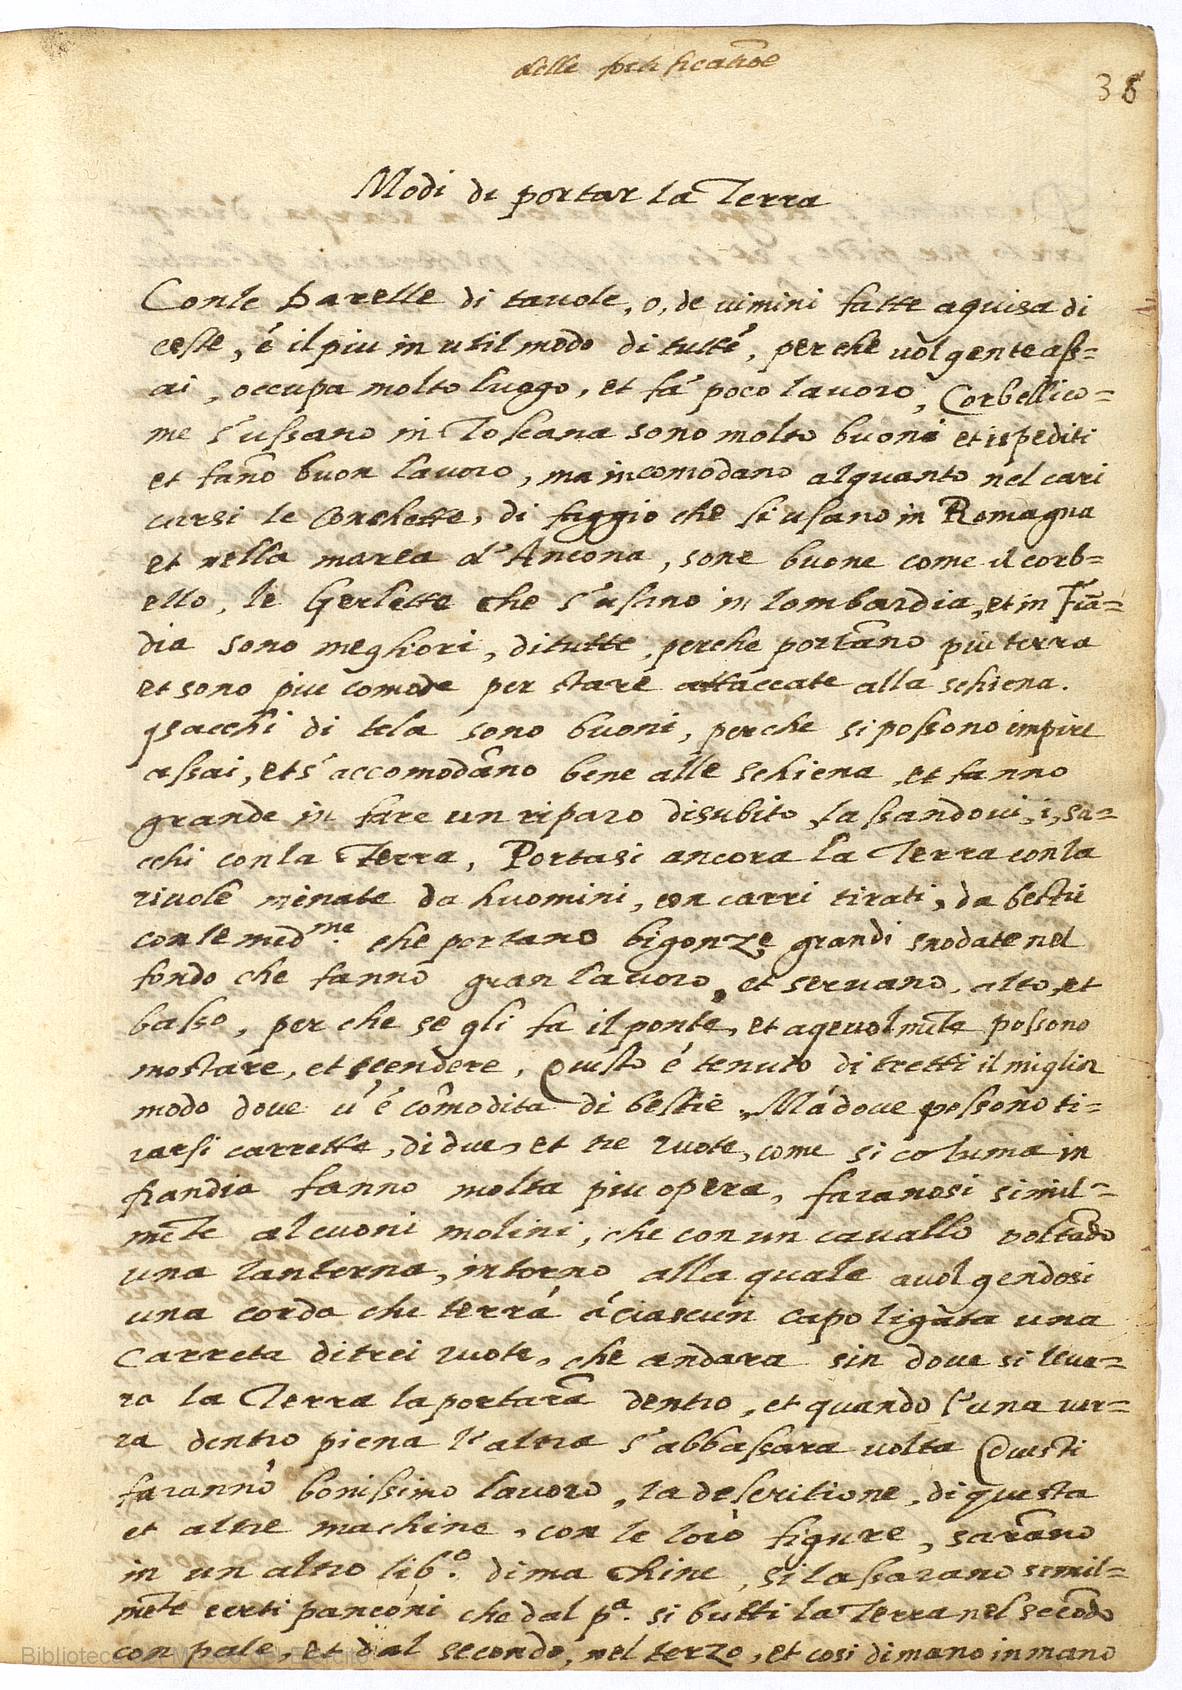 delle fortificatiõe
38
Modi di portar la Terra
Conle barelle di tauole, o, de uimini fatte aguisa di
ceste, é il piu inutil modo di tutté, perche uol gente ass=
ai, occupa molto luogo, et fà poco lauoro, Corbellico=
me s'ussano in Toscana sono molto buoni et ispediti
et fano buon lauoro, ma incomodano alquanto nel cari
carsi le Corslette, di faggio che si usano in Romagna
et nella marca d'Ancona, sone buone come il corb=
ello, le Gerlette che s'usano in lombardia, et in Fiã=
dia sono meghiori, ditutte, perche portano piu terra
et sono piu comode per stare attaccate alla schiena.
I sacchi di tela sono buoni, perche si possono impire
assai, et s'accomodano bene alle schiena, et fanno
grande in fare un riparo disubito, lassandoui, i, sa=
cchi conla Terra, Portasi ancora la Terra conla
riuole menate da huomini, con carri tirati, da bestie
conle med.me che portano bigonze grandi snodate nel
fondo che fanno gran lauoro, et seruano, alto, et
basso, perche se gli fa il ponte, et ageuolmẽte possono
mostare, et scendere, Questo é tenuto di tretti il miglior
modo doue u'é cõmodita di bestie, Má doue possono ti=
rarsi carrette, didue, et tre ruote, come si costuma in
fiandia fanno molta piu opera, faranosi simil=
mẽte alcuoni molini, che con un cauallo voltãdo
una lanterna, intorno alla quale auolgendosi
una corda che terrá áciascun capo ligata una
Carreta ditrei ruote, che andara sin doue si leue=
ra la Terra la portarã dentro, et quando l'una uer=
ra dentro piena l'altra s'abbassara uolta Questi
faranno bonissimo lauoro, la descritione, di questa
et altre machine, con le loro figure, sarãno
in un altro lib.o dima chine, si lassarano simil=
mẽte certi panconi che dal p.a si butti la Terra nel secõdo
con pale, et dal secondo, nel terzo, et cosi di mano in mano